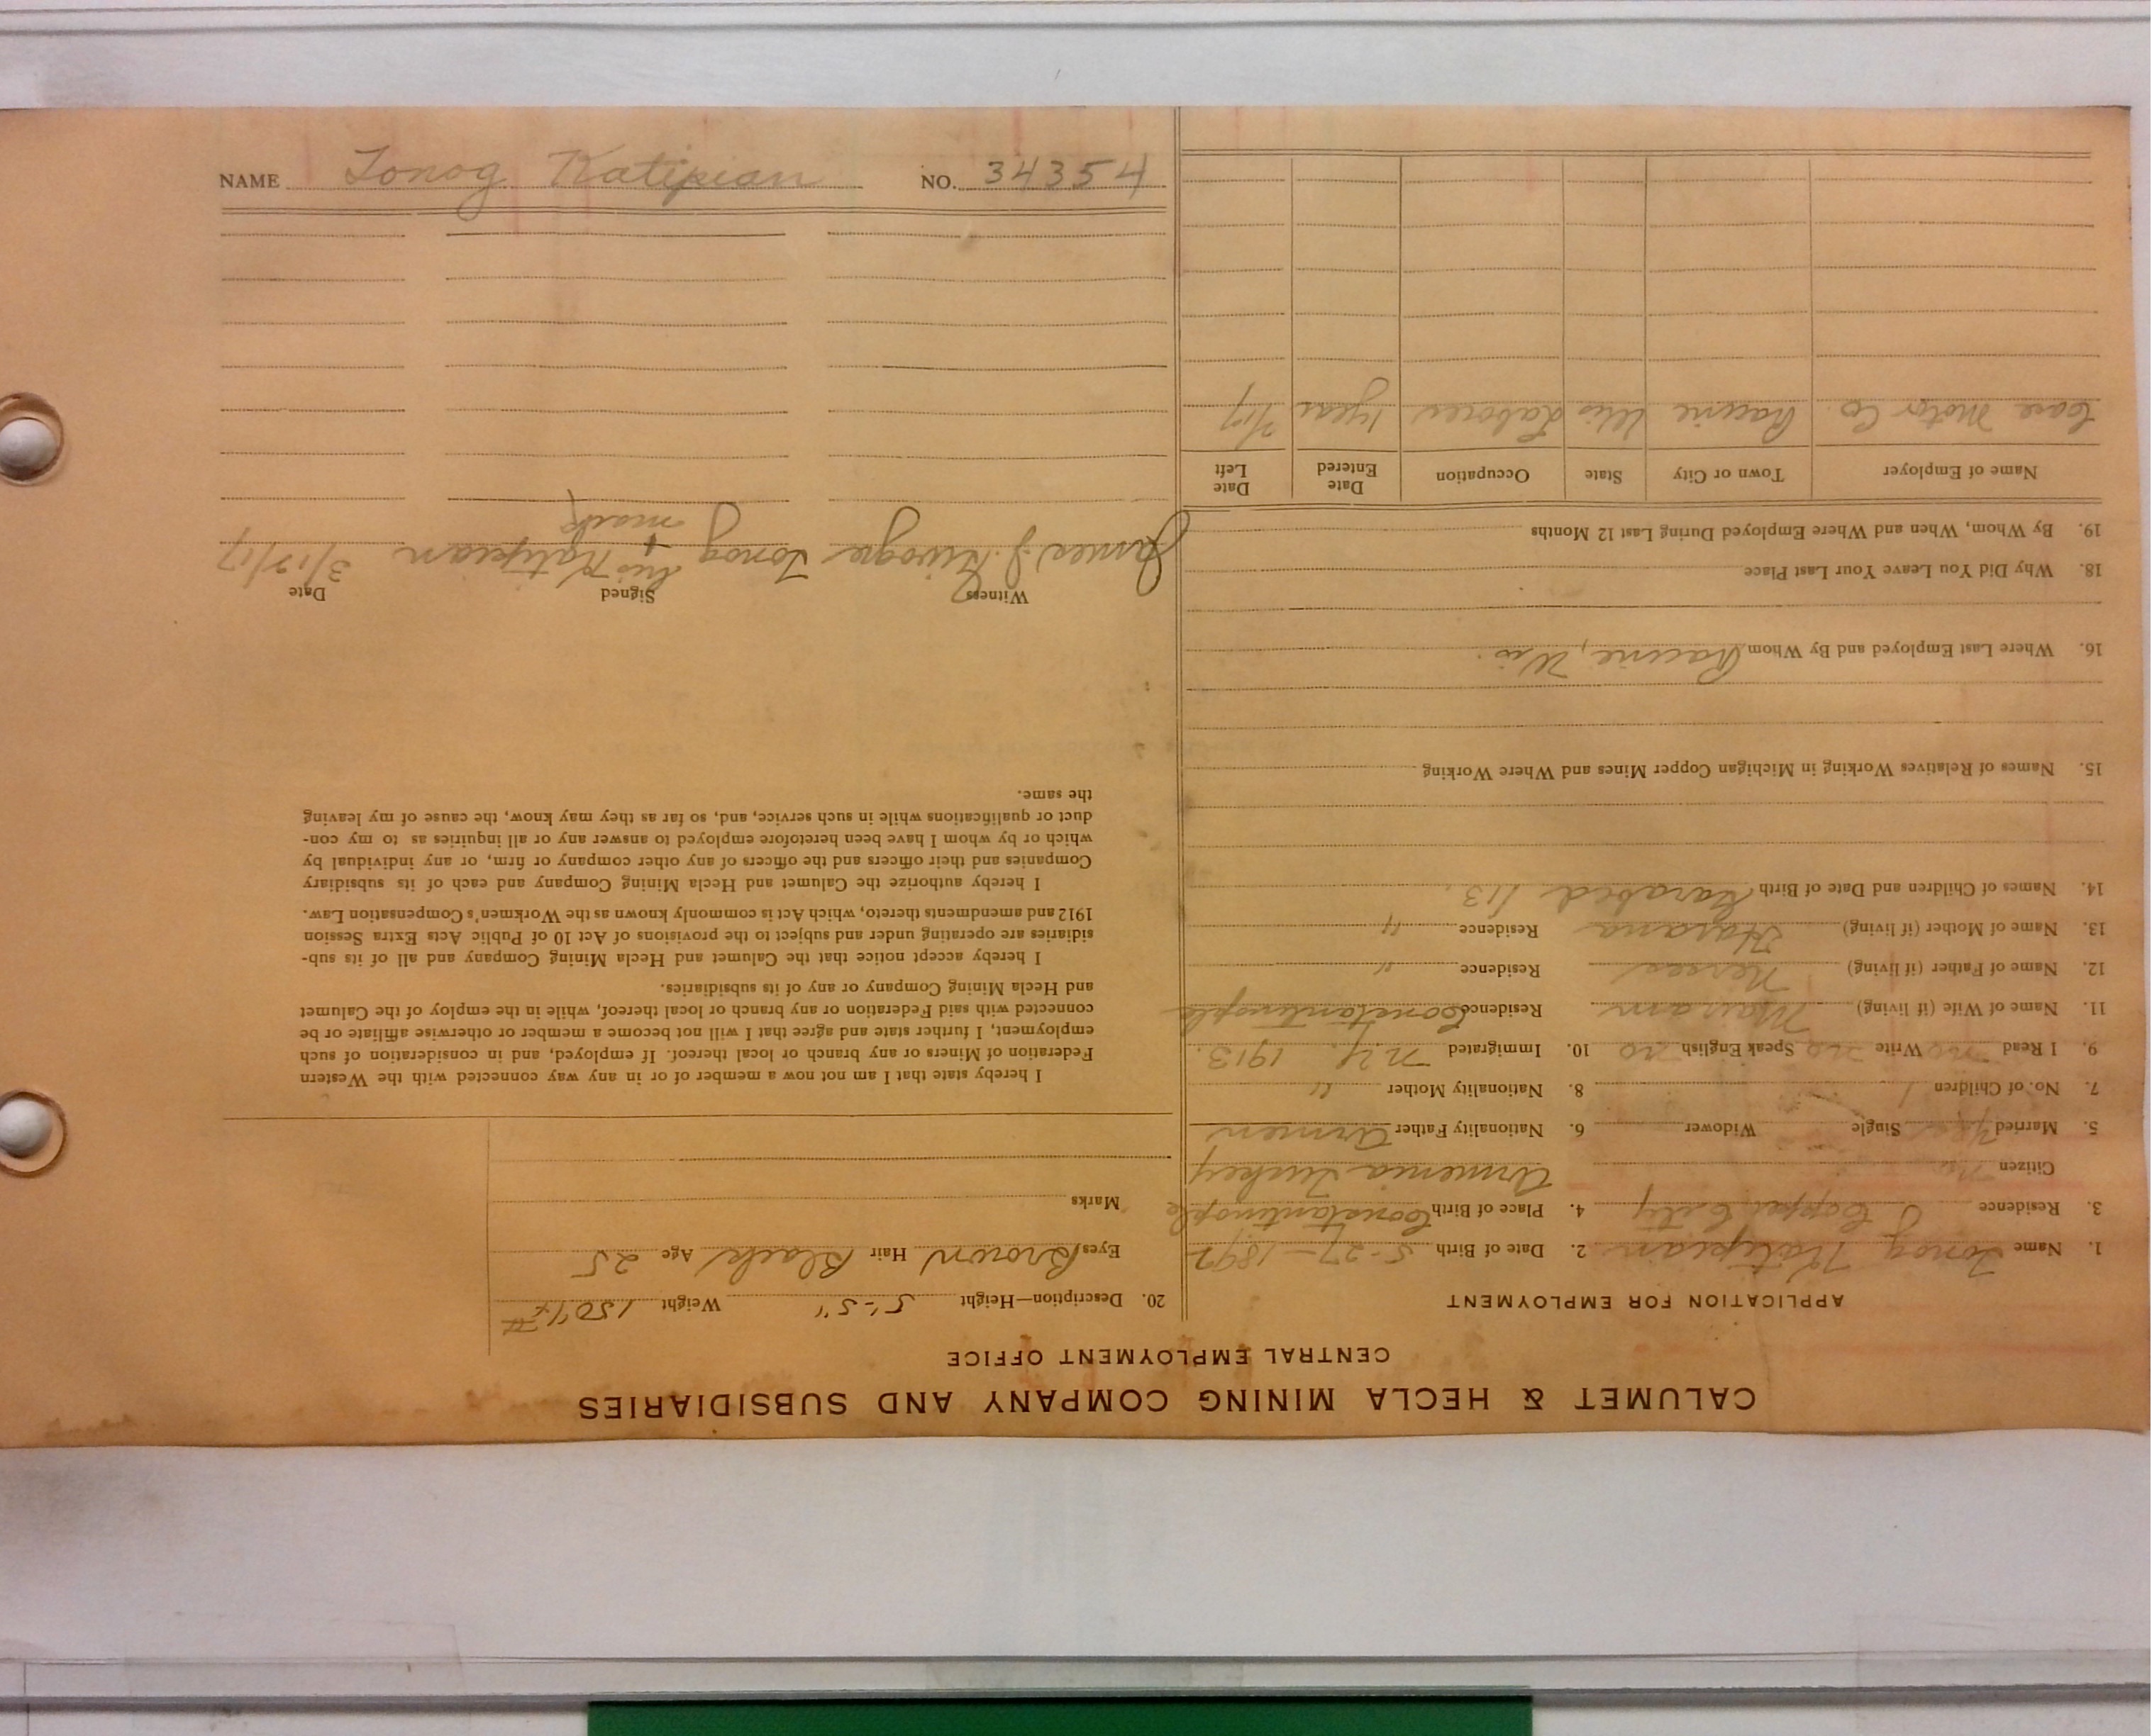 NAME Tonog Katipian NO. 34354
CALUMET & HECLA MINING COMPANY AND SUBSIDIARIES
CENTRAL EMPLOYMENT OFFICE
APPLICATION FOR EMPLOYMENT
1. Name Tonog Katipian 2. Date of Birth 5-27-1892
3. Residence Copper City 4. Place of Birth Constantinople
Citizen no Armenia Turkey
5. Married yes Single Widower 6. Nationality Father Armen
7. No. of Children 1 8. Nationality Mother "
9. I Read no Write no Speak English no 10. Immigrated N.Y. 1913.
11. Name of Wife (if living) Mariam Residence Constantinople
12. Name of Father (if living) Nerces Residence "
13. Name of Mother (if living) Hasana Residence "
14. Names of Children and Date of Birth Carabed 1/13.
15. Names of Relatives Working in Michigan Copper Mines and Where Working
16. Where Last Employed and By Whom Racine, Wis.
18. Why Did You Leave Your Last Place
19. By Whom, When and Where Employed During Last 12 Months
Name of Employer Town or City State Occupation Date Entered Date Left
Case Motor Co. Racine Wis Laborer 1 year 2/17
20. Description—Height 5'-5" Weight 150 #
Eyes Brown Hair Black Age 25
Marks
I hereby state that I am not now a member of or in any way connected with the Western
Federation of Miners or any branch or local thereof. If employed, and in consideration of such
employment, I further state and agree that I will not become a member or otherwise affiliate or be
connected with said Federation or any branch or local thereof, while in the employ of the Calumet
and Hecla Mining Company or any of its subsidiaries.
I hereby accept notice that the Calumet and Hecla Mining Company and all of its sub-
sidiaries are operating under and subject to the provisions of Act 10 of Public Acts Extra Session
1912 and amendments thereto, which Act is commonly known as the Workmen's Compensation Law.
I hereby authorize the Calumet and Hecla Mining Company and each of its subsidiary
Companies and their officers and the officers of any other company or firm, or any individual by
which or by whom I have been heretofore employed to answer any or all inquiries as to my con-
duct or qualifications while in such service, and, so far as they may know, the cause of my leaving
the same.
Witness Signed Date
James J. Tonog his + Katipian 3/12/17
mark